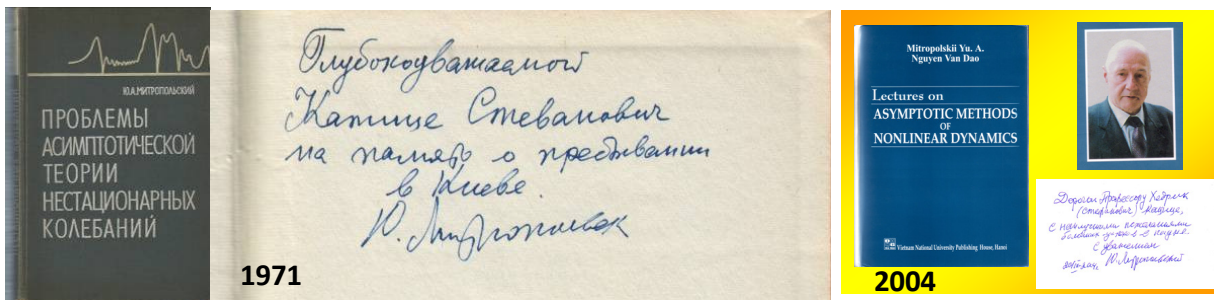 Ю.А.МИТРОПОЛЬСКИЙ
ПРОБЛЕМЫ
АСИМПТОТИЧЕСКОЙ
ТЕОРИИ
НЕСТАЦИОНАРНЫХ
КОЛЕБАНИЙ
Глубокоуважаемой
Катице Стеванович
на память о пребывании
в Киеве.
Ю. Митропольск
1971
Mitropolskii Yu. A.
Nguyen Van Dao
Lectures on
ASYMPTOTIC METHODS
OF
NONLINEAR DYNAMICS
Vietnam National University Publishing House, Hanoi
2004
Дорогой Профессору Хедрих
(Стеванович) Катице,
с наилучшими пожеланиями
больших успехов в науке.
С уважением
Ю. Митропольский